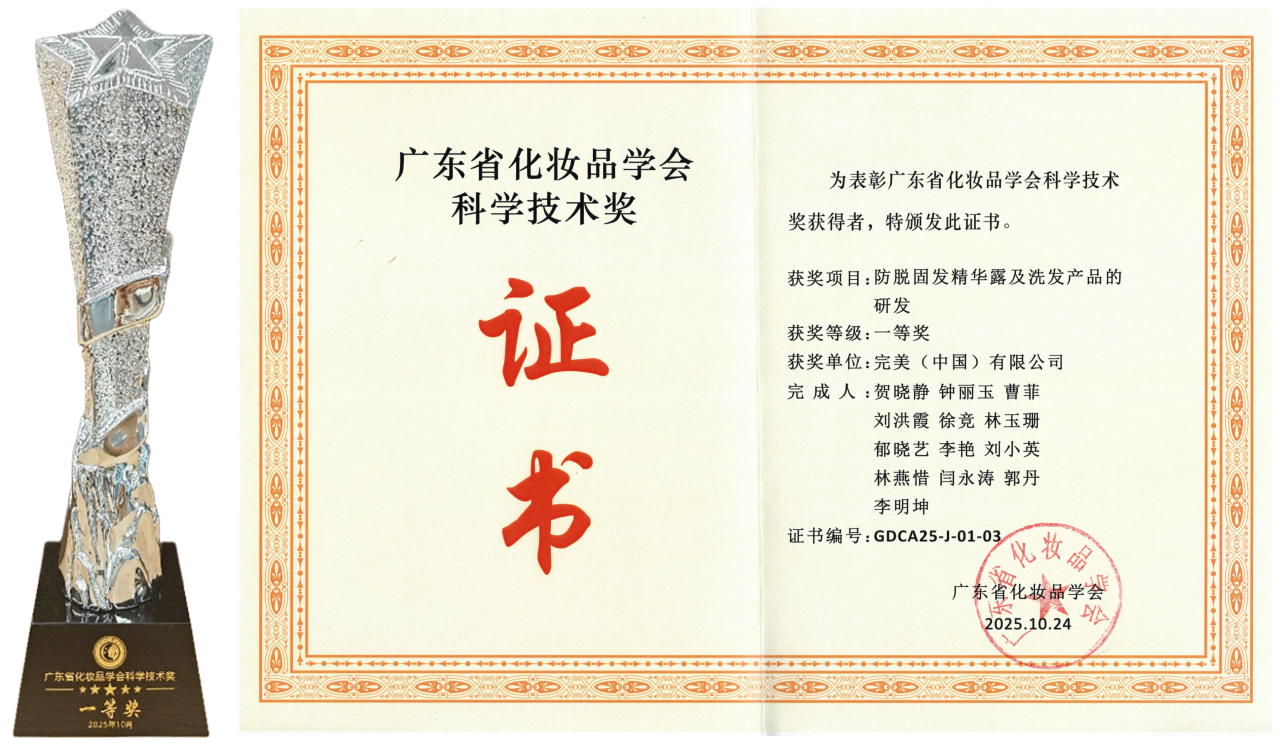 广东省化妆品学会科学技术奖
一等奖
2025年10月
广东省化妆品学会
科学技术奖
证
书
为表彰广东省化妆品学会科学技术
奖获得者，特颁发此证书。
获奖项目：防脱固发精华露及洗发产品的
研发
获奖等级：一等奖
获奖单位：完美（中国）有限公司
完成人：贺晓静 钟丽玉 曹菲
刘洪霞 徐竞 林玉珊
郁晓艺 李艳 刘小英
林燕惜 闫永涛 郭丹
李明坤
证书编号：GDCA25-J-01-03
广东省化妆品学会
2025.10.24
广东省化妆品学会